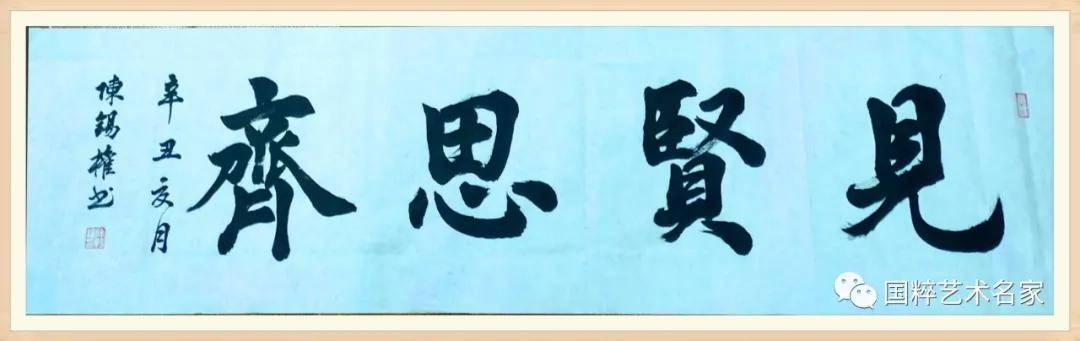 見賢思齊
辛丑亥月
陳錫權书
国粹艺术名家